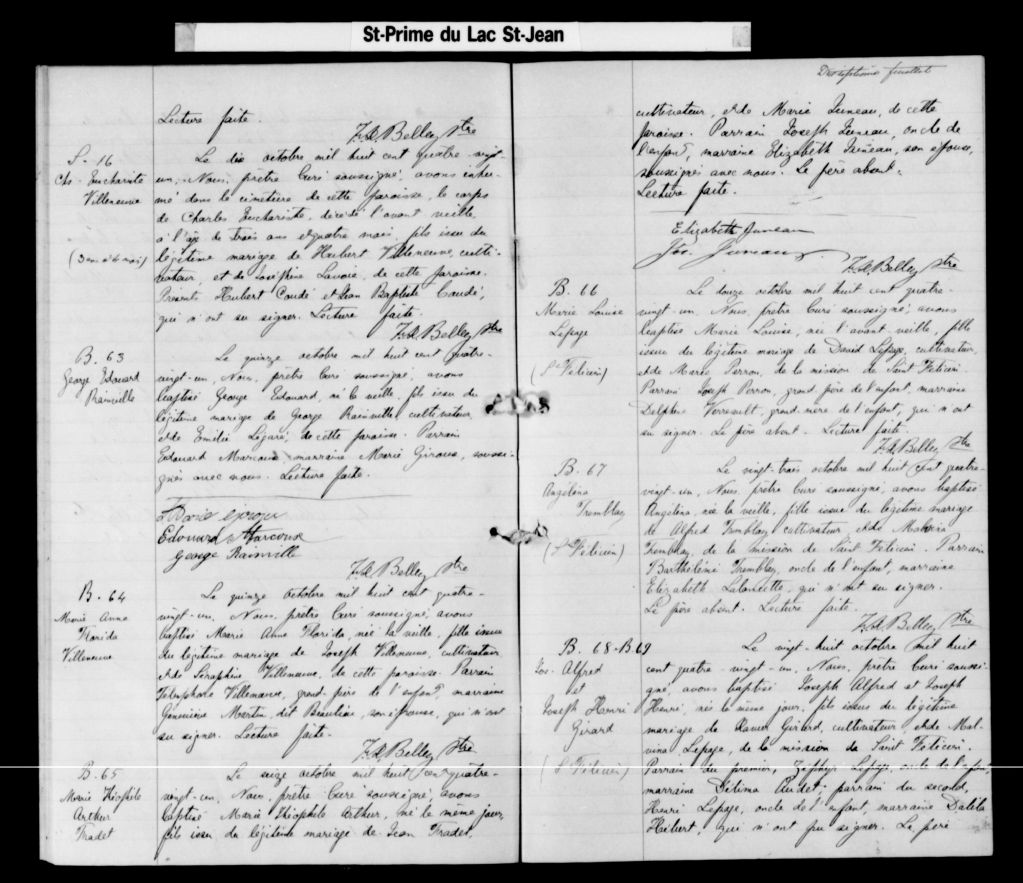 St-Prime du Lac St-Jean
Lecture faite.
F.X. Belley Ptre
S-16
Chs-Eucharite
Villeneuve
(3 ans et 4 mois)
Le dix octobre mil huit cent quatre-vingt-
un, Nous, prêtre Curé soussigné, avons inhu-
mé dans le cimetière de cette paroisse, le corps
de Charles Euchariste, décédé l'avant veille,
à l'âge de trois ans et quatre mois, fils issu du
légitime mariage de Hubert Villeneuve, culti-
vateur, et de Josephine Lavoie, de cette paroisse.
Présents Hubert Caudé et Jean Baptiste Caudé,
qui n'ont su signer. Lecture faite.
F.X. Belley Ptre
B. 63
George Edouard
Rainville
Le quinze octobre mil huit cent quatre-
vingt-un, Nous, prêtre Curé soussigné, avons
baptisé George Edouard, né la veille, fils issu du
légitime mariage de George Rainville cultivateur
et de Emilie Légaré, de cette paroisse. Parrain
Edouard Marcoux, marraine Marie Giroux, soussi-
gnés avec nous. Lecture faite.
Edouard Marcoux
George Rainville
F.X. Belley Ptre
B. 64
Marie Anne
Florida
Villeneuve
Le quinze octobre mil huit cent quatre-
vingt-un, Nous, prêtre Curé soussigné, avons
baptisé Marie Anne Florida, née la veille, fille issue
du légitime mariage de Joseph Villeneuve, cultivateur
et de Séraphine Villeneuve, de cette paroisse. Parrain
Télesphore Villeneuve, grand-père de l'enfant, marraine
Geneviève Martin dit Beaulieu, son épouse, qui n'ont
su signer. Lecture faite.
F.X. Belley Ptre
B. 65
Marie Théophile
Arthur
Fradet
Le seize octobre mil huit cent quatre-
vingt-un, Nous, prêtre Curé soussigné, avons
baptisé Marie Théophile Arthur, né le même jour,
fils issu du légitime mariage de Jean Fradet,
cultivateur, et de Marie Juneau, de cette
paroisse. Parrain Joseph Juneau, oncle de
l'enfant, marraine Elizabeth Juneau, son épouse,
soussignés avec nous. Le père absent.
Lecture faite.
Elizabeth Juneau
Jos. Juneau
F.X. Belley Ptre
B. 66
Marie Louise
Lepage
(St Félicien)
Le douze octobre mil huit cent quatre-
vingt-un, Nous, prêtre Curé soussigné, avons
baptisé Marie Louise, née l'avant veille, fille
issue du légitime mariage de David Lepage, cultivateur,
et de Marie Perron, de la mission de Saint Félicien.
Parrain Joseph Perron, grand père de l'enfant, marraine
Delphine Verreault, grand-mère de l'enfant, qui n'ont
su signer. Le père absent. Lecture faite.
F.X. Belley Ptre
B. 67
Angélina
Tremblay
(St Félicien)
Le vingt-trois octobre mil huit cent quatre-
vingt-un, Nous, prêtre Curé soussigné, avons baptisé
Angélina, née la veille, fille issue du légitime mariage
de Alfred Tremblay cultivateur et de
Tremblay, de la mission de Saint Félicien. Parrain
Barthélémi Tremblay, oncle de l'enfant, marraine
Elizabeth Lalancette, qui n'ont su signer.
Le père absent. Lecture faite.
F.X. Belley Ptre
B. 68-B. 69
Jos. Alfred
et
Joseph Henri
Girard
(St Félicien)
Le vingt-huit octobre mil huit
cent quatre-vingt-un, Nous, prêtre Curé soussi-
gné, avons baptisé Joseph Alfred et Joseph
Henri, nés le même jour, fils issus du légitime
mariage de Xavier Girard, cultivateur, et de Mal-
vina Lepage, de la mission de Saint Félicien.
Parrain du premier, Zéphyr Lepage, oncle de l'enfant,
marraine Audet; parrain du second,
Henri Lepage, oncle de l'enfant, marraine Dalila
Hébert, qui n'ont pu signer. Le père